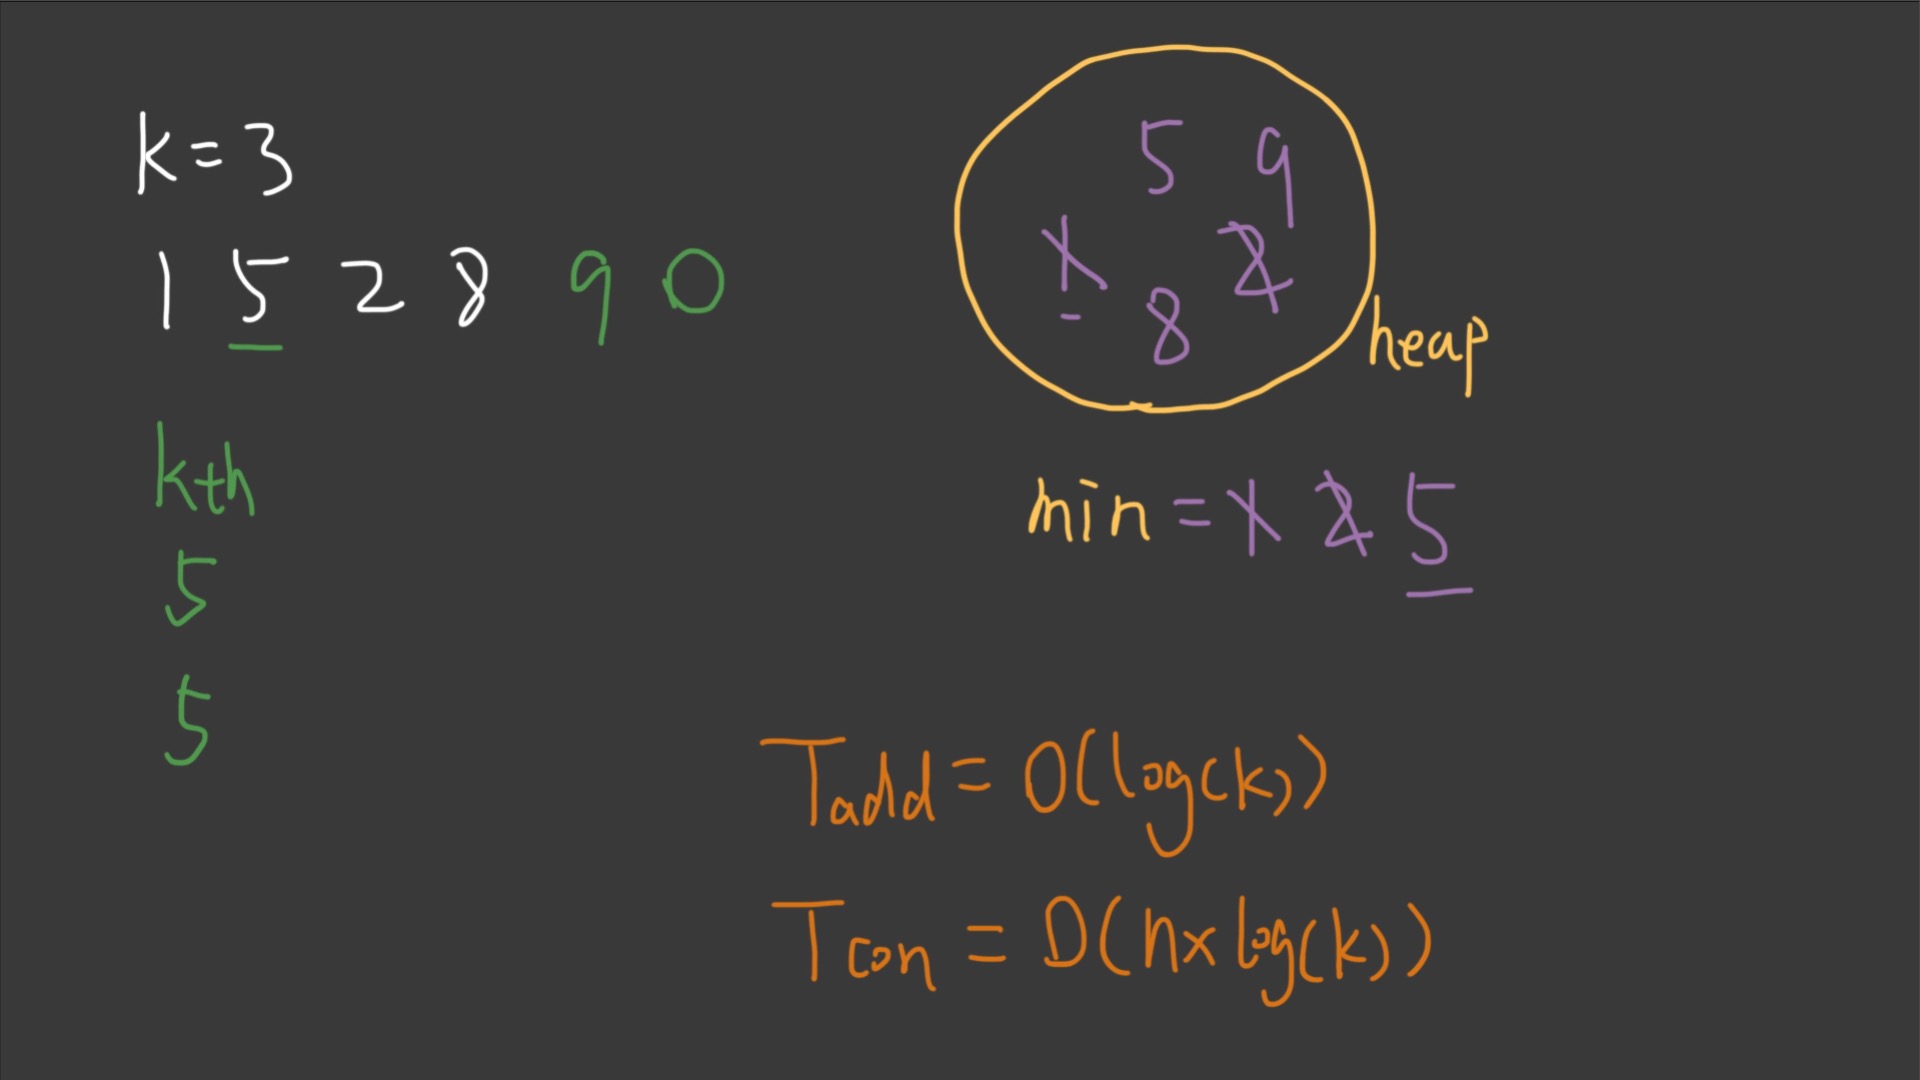 k=3
1 5 2 8 9 0
kth
5
5
5 9
1 2
8
heap
min = 1 2 5
Tadd = O(log(k))
Tcon = O(n×log(k))